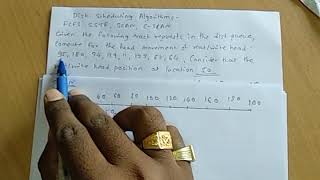 Disk Scheduling Algorithms -
FCFS, SSTF, SCAN, C-SCAN
Given the following track requests in the disk queue,
compute for the head movement of read/write head -
95, 180, 34, 119, 11, 123, 62, 64, Consider that the
/write head position at location 50
40 60 80 100 120 140 160 180 200